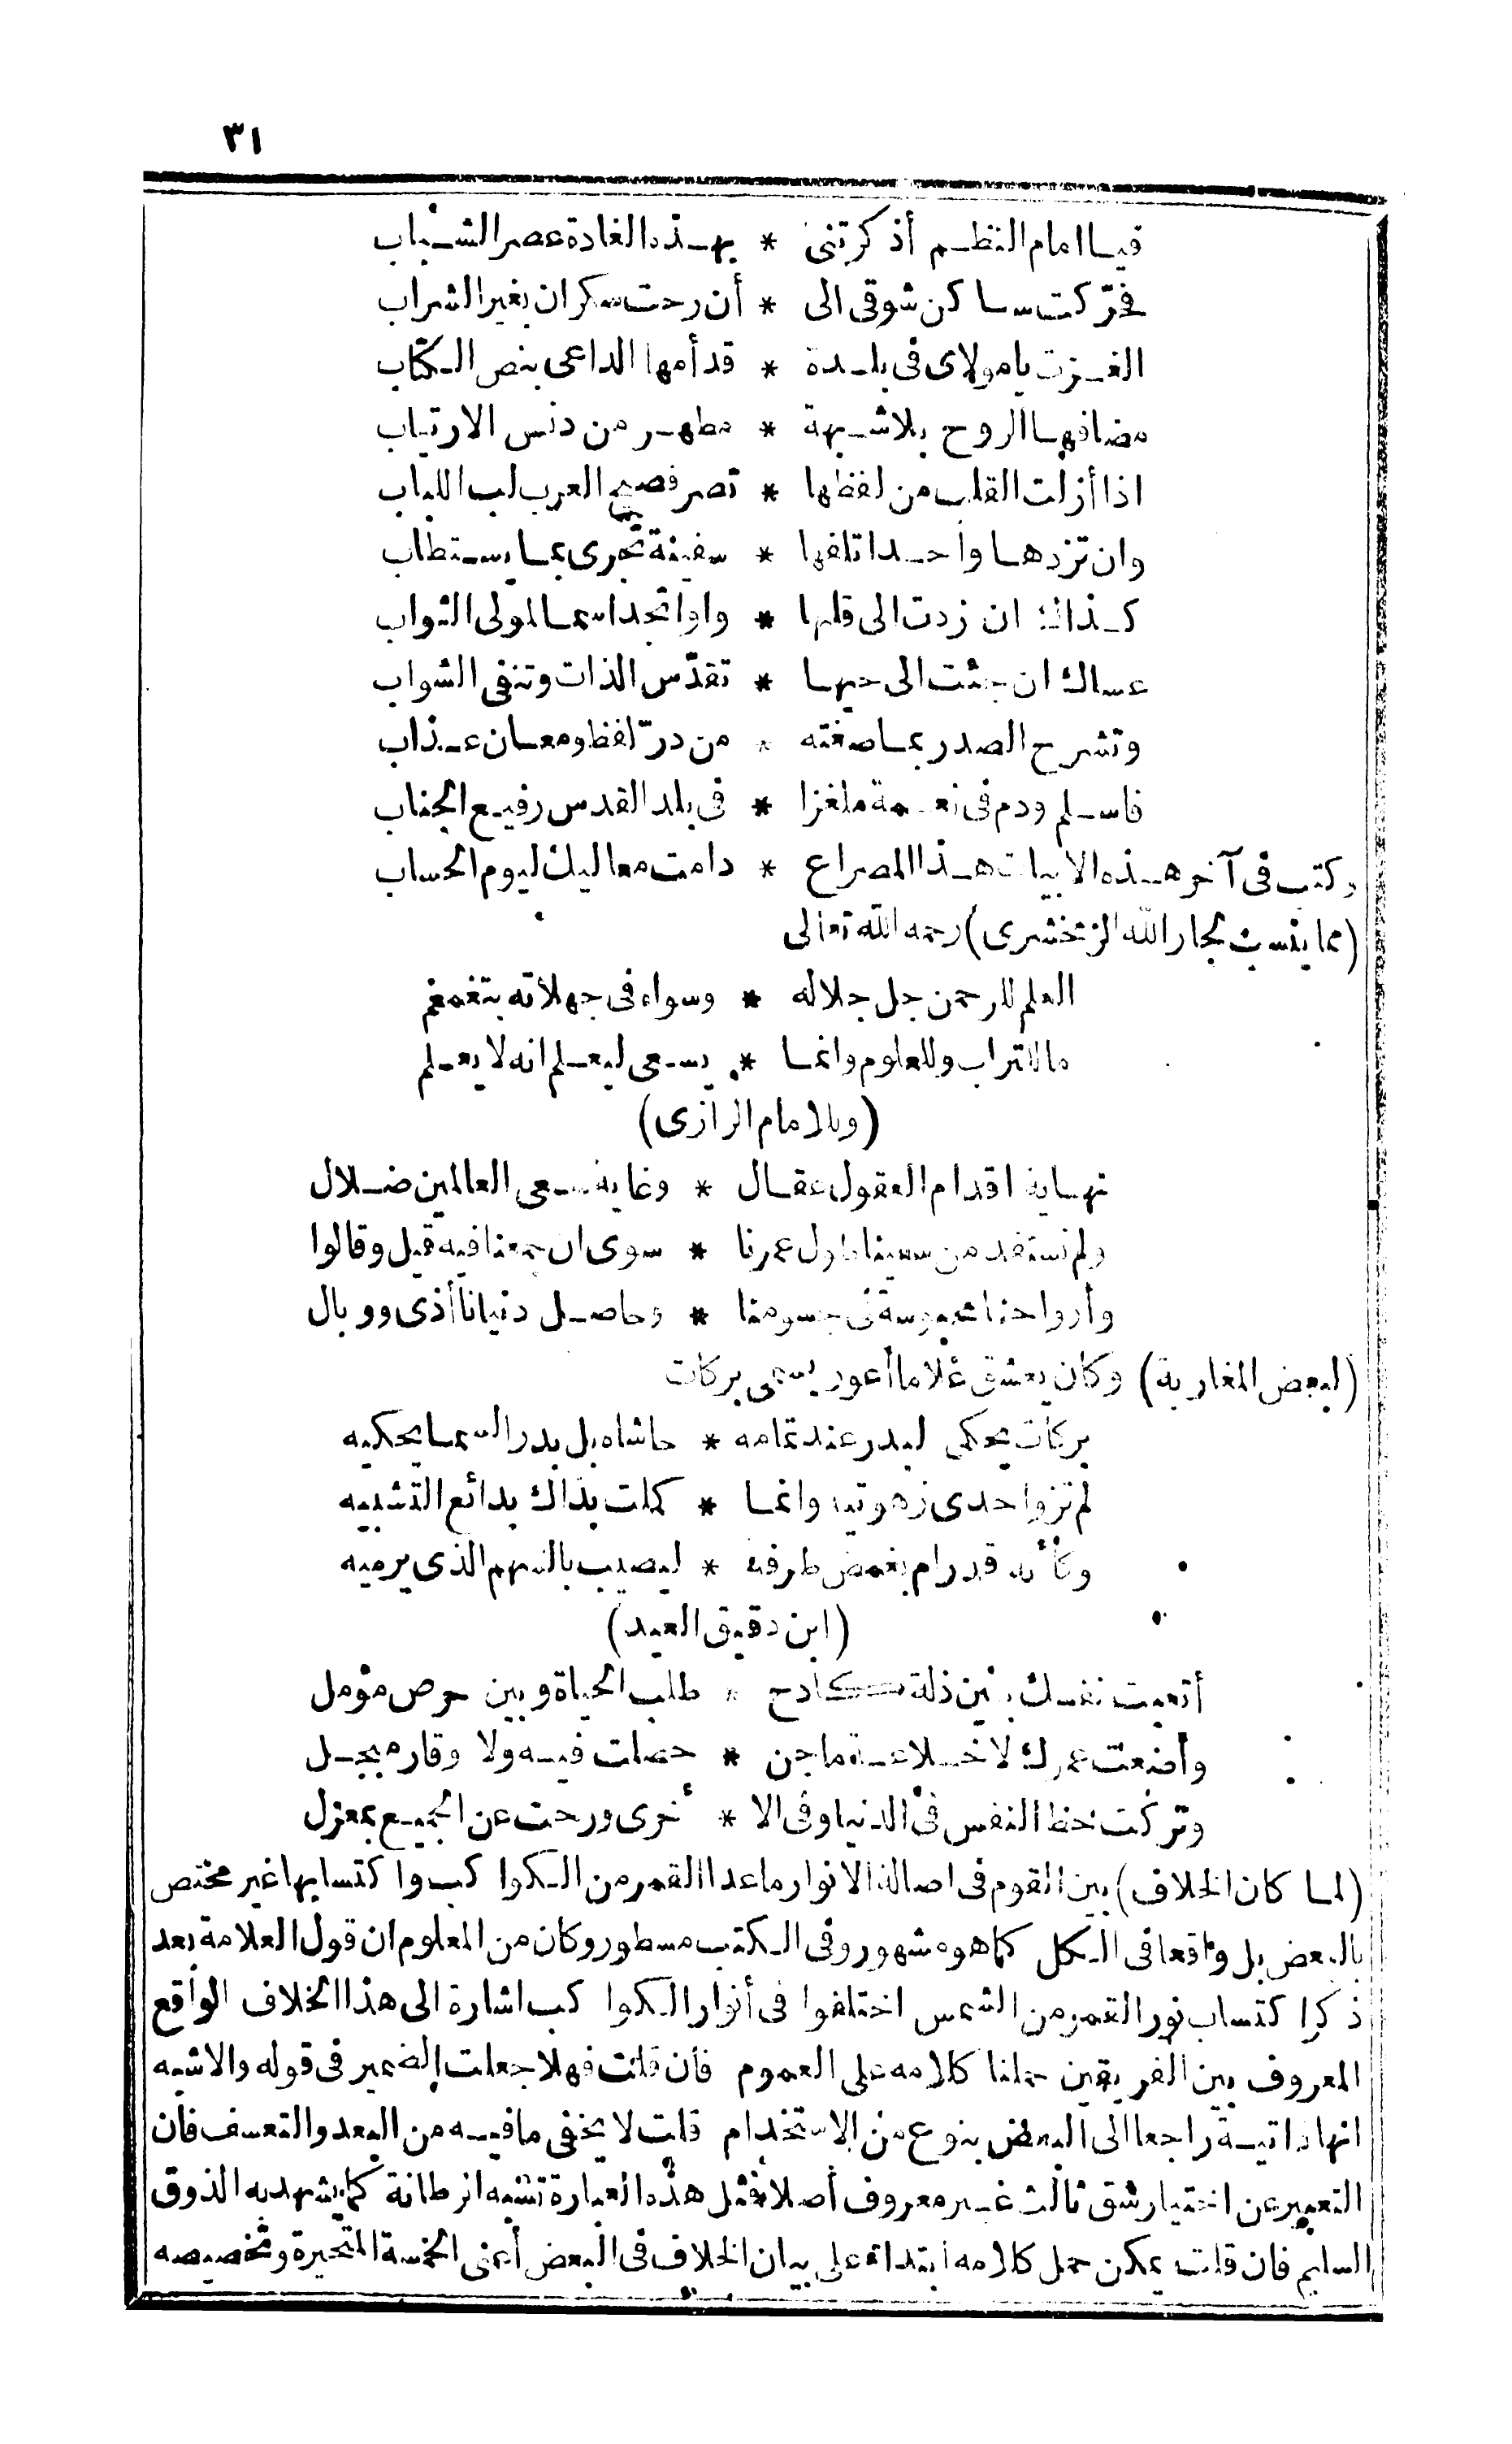 ٣١
فيا امام النظم أذكرتنى * بهذه الغادة عصر الشباب
فحرّكت ساكن شوقى الى * أن رحت سكران بغير الشراب
الغزت يا مولاى فى بلدة * قد أمها الداعى بنص الكتاب
مضافها الروح بلا شبهة * مطهر من دنس الارتياب
اذا أزلت القلب من لفظها * تصر فصيح العرب لب اللباب
وان تزدها واحدا تلفها * سفينة تجرى بما يستطاب
كذاك ان زدت الى قلبها * واوا تجد اسما لمولى الثواب
عساك ان جئت الى حيها * تقدّس الذات وتنفى الشواب
وتشرح الصدر بما صغته * من درّ لفظ ومعان عذاب
فاسلم ودم فى نعمة ملغزا * فى بلد القدس رفيع الجناب
وكتب فى آخر هذه الابيات هذا المصراع * دامت معاليك ليوم الحساب
(مما ينسب لجار الله الزمخشرى) رحمه الله تعالى
العلم للرحمن جل جلاله * وسواه فى جهلاته يتغمغم
ما للتراب وللعلوم وانما * يسعى ليعلم انه لا يعلم
(وللامام الرازى)
نهاية اقدام العقول عقال * وغاية سعى العالمين ضلال
ولم نستفد من سعينا طول عمرنا * سوى ان جمعنا فيه قيل وقالوا
وأرواحنا محبوسة فى جسومنا * وحاصل دنيانا أذى ووبال
(لبعض المغاربة) وكان يعشق غلاما أعور يسمى بركات
بركات يحكى البدر عند تمامه * حاشاه بل بدر السما يحكيه
لم تزو احدى زهرتيه وانما * كملت بذاك بدائع التشبيه
وكأنه قد رام بغمض طرفه * ليصيب بالسهم الذى يرميه
(ابن دقيق العيد)
أتعبت نفسك بين ذلة كادح * طلب الحياة وبين حرص مؤمل
وأضعت عمرك لا خلاعة ماجن * حصلت فيه ولا وقار مبجل
وتركت حظ النفس فى الدنيا وفى الا * خرى ورحت عن الجميع بمعزل
(لما كان الخلاف) بين القوم فى اصالة الانوار ما عدا القمر من الكواكب واكتسابها غير مختص
بالبعض بل واقعا فى الكل كما هو مشهور وفى الكتب مسطور وكان من المعلوم ان قول العلامة بعد
ذكر اكتساب نور القمر من الشمس اختلفوا فى أنوار الكواكب اشارة الى هذا الخلاف الواقع
المعروف بين الفريقين حملنا كلامه على العموم فان قلت فهلا جعلت الضمير فى قوله والاشبه
انها ذاتية راجعا الى البعض بنوع من الاستخدام قلت لا يخفى ما فيه من البعد والتعسف فان
التعبير عن اختيار شق ثالث غير معروف أصلا بمثل هذه العبارة تشبه الرطانة كما يشهد به الذوق
السليم فان قلت يمكن حمل كلامه ابتداء على بيان الخلاف فى البعض أعنى الخمسة المتحيرة وتخصيصه